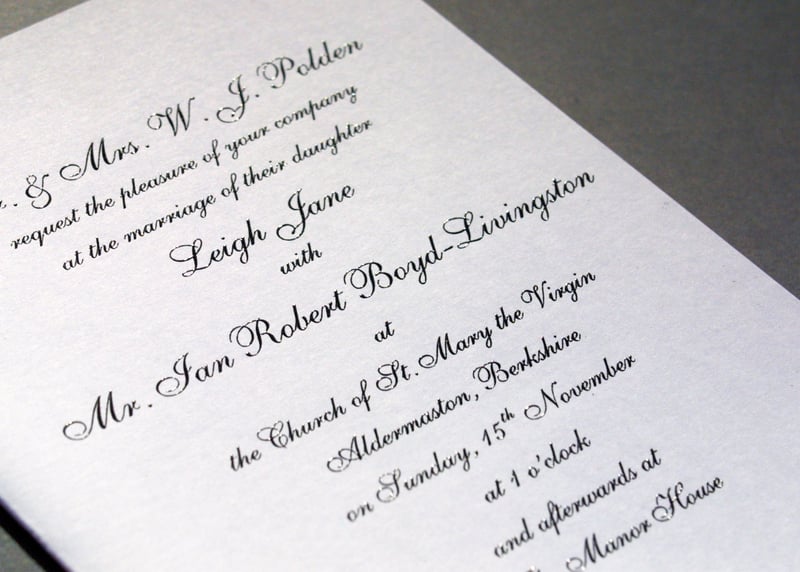 & Mrs. W. J. Polden
request the pleasure of your company
at the marriage of their daughter
Leigh Jane
with
Mr. Ian Robert Boyd-Livingston
at
the Church of St. Mary the Virgin
Aldermaston, Berkshire
on Sunday, 15th November
at 1 o'clock
and afterwards at
Manor House